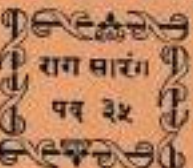 राग सारंग।
पद ३५